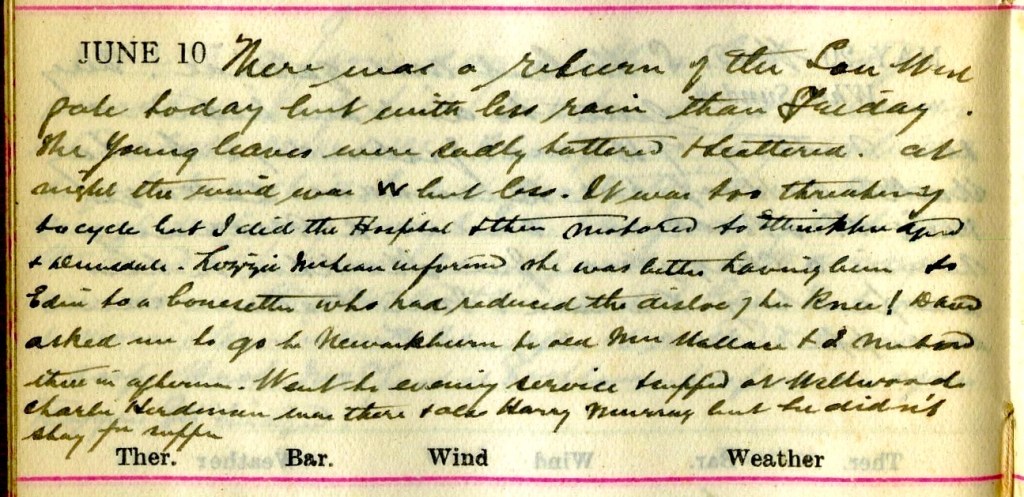 JUNE 10 There was a return of the Sou West
gale today but with less rain than Friday.
The Young leaves were sadly battered & scattered. At
night the wind was W but less. It was too threatening
to cycle but I did the Hospital & then motored to
& Denisdale. Lizzie McLean informed she was better having been to
Edin to a bonesetter who had reduced the disloc of her Knee! David
asked me to go to Newarkburn to old Mrs Wallace & I motored
there in afternoon. Went to evening service & supped at Wellwoods
Charlie Herdman was there & also Harry Murray but he didn't
stay for supper
Ther. Bar. Wind Weather